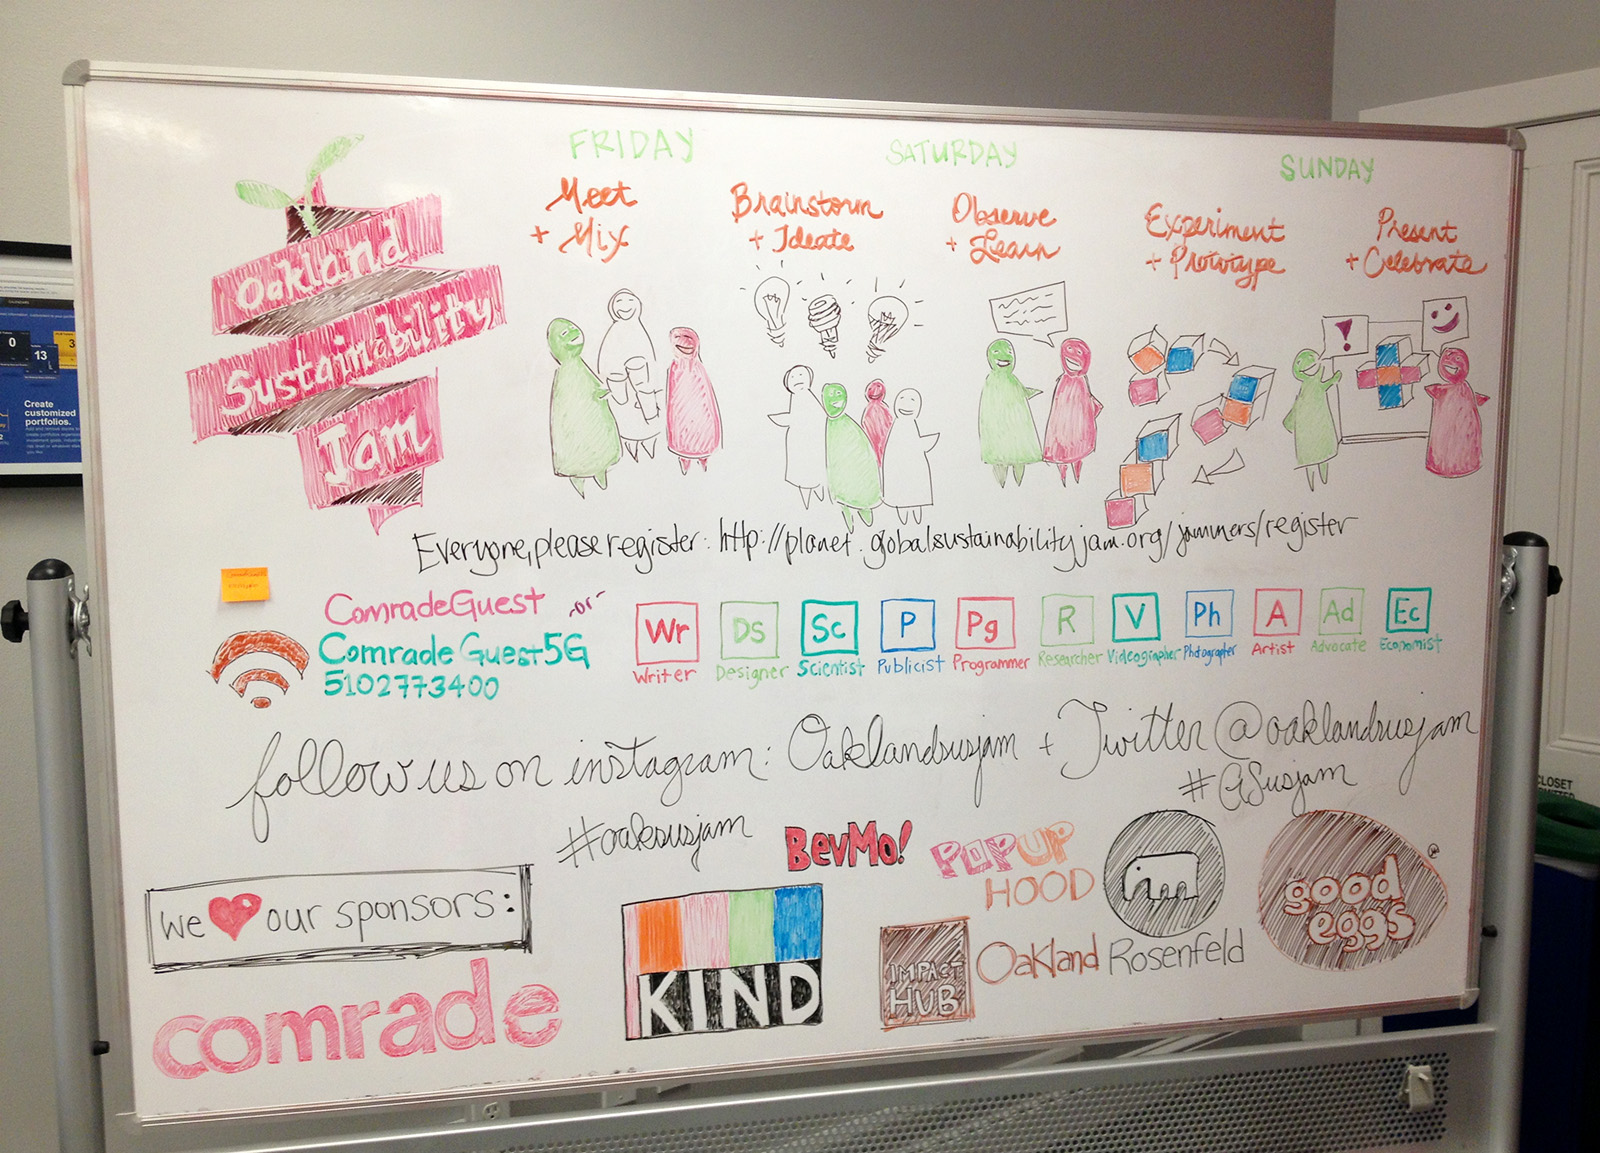 FRIDAY
SATURDAY
SUNDAY
Meet
+ Mix
Brainstorm
+ Ideate
Observe
+ Learn
Experiment
+ Prototype
Present
+ Celebrate
Oakland
Sustainability
Jam
!
Everyone, please register: http://planet.globalsustainabilityjam.org/jammers/register
ComradeGuest -or-
Comrade Guest5G
5102773400
Wr
Writer
Ds
Designer
Sc
Scientist
P
Publicist
Pg
Programmer
R
Researcher
V
Videographer
Ph
Photographer
A
Artist
Ad
Advocate
Ec
Economist
follow us on instagram: Oaklandsusjam + Twitter @oaklandsusjam
#GSusjam
#oaksusjam
we our sponsors:
BevMo!
POPUP
HOOD
good
eggs
KIND
IMPACT
HUB
Oakland Rosenfeld
comrade
0
13
3
Create
customized
portfolios.
CLOSET